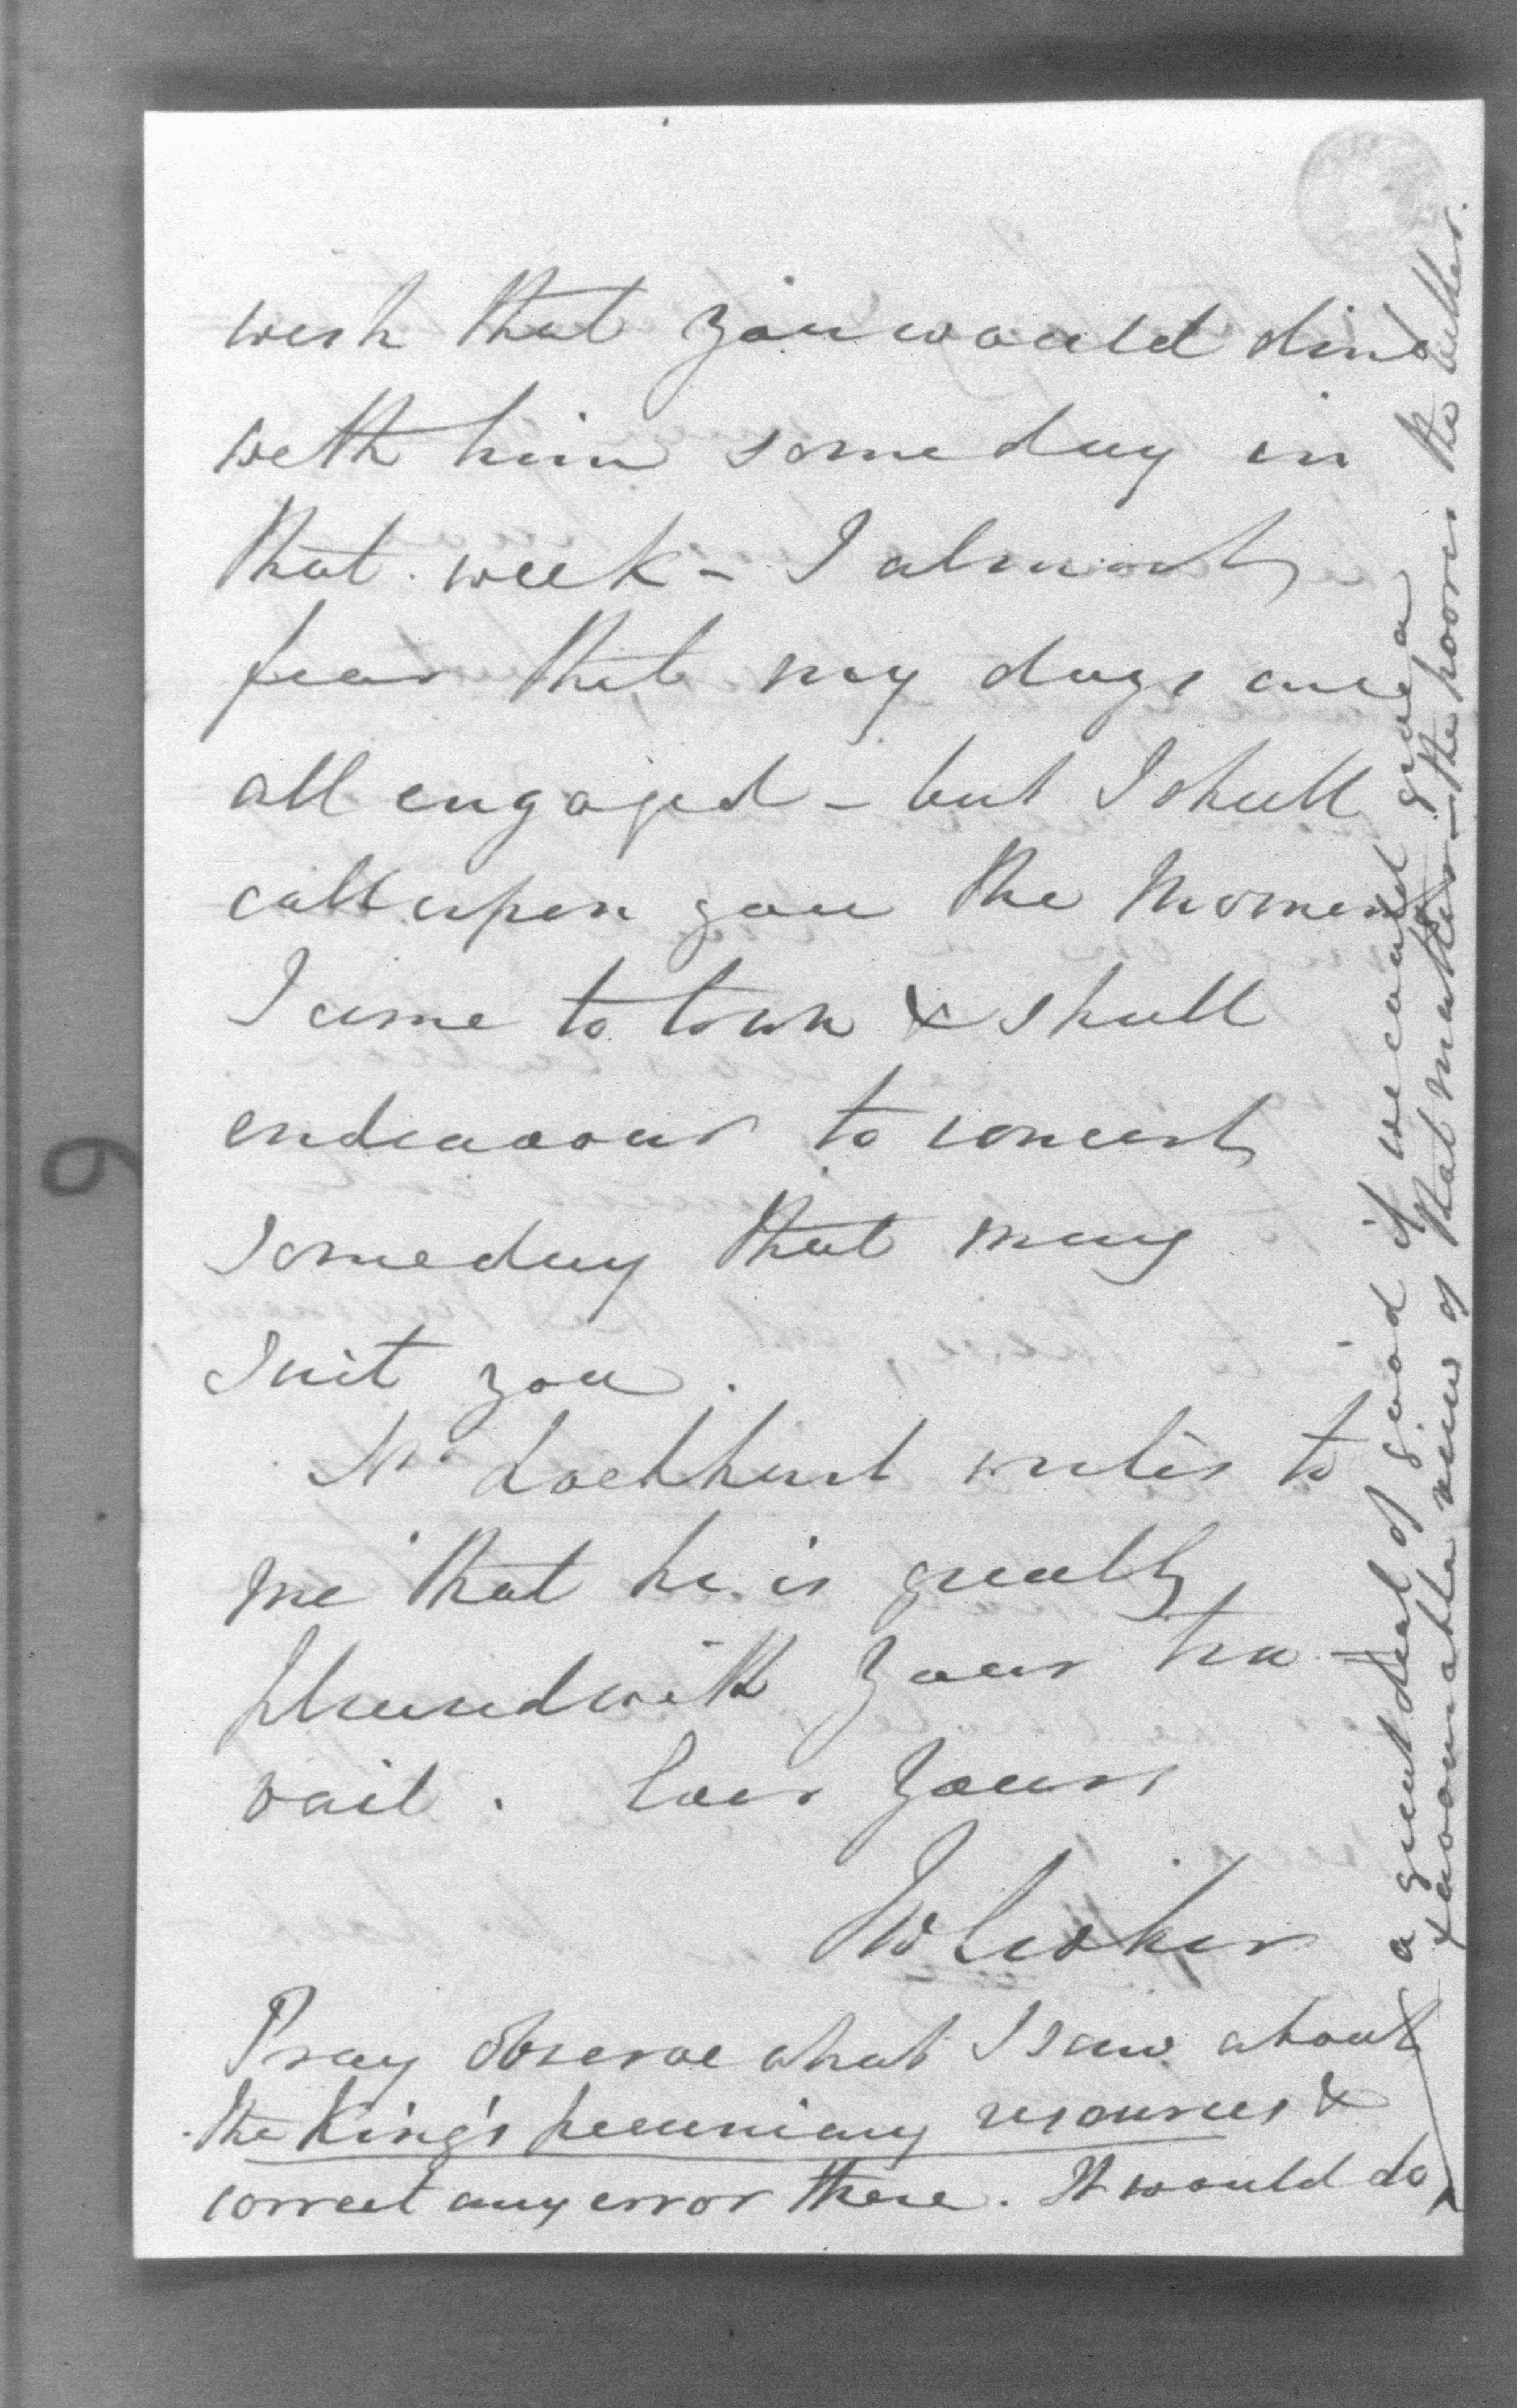 wish that you would dine
with him some day in
that week - I almost
fear that my days are
all engaged - but I shall
call upon you the moment
I come to town & shall
endeavour to concert
some day that may
suit you.
Mr Lockhart writes to
me that he is greatly
pleased with your tra-
vail. Ever Yours
JWCroker
Pray observe what I saw about
the King's pecuniary resources &
correct any error there. It would do
a great deal of good if we could give a
favourable view of that matter - the poorer the better.
6